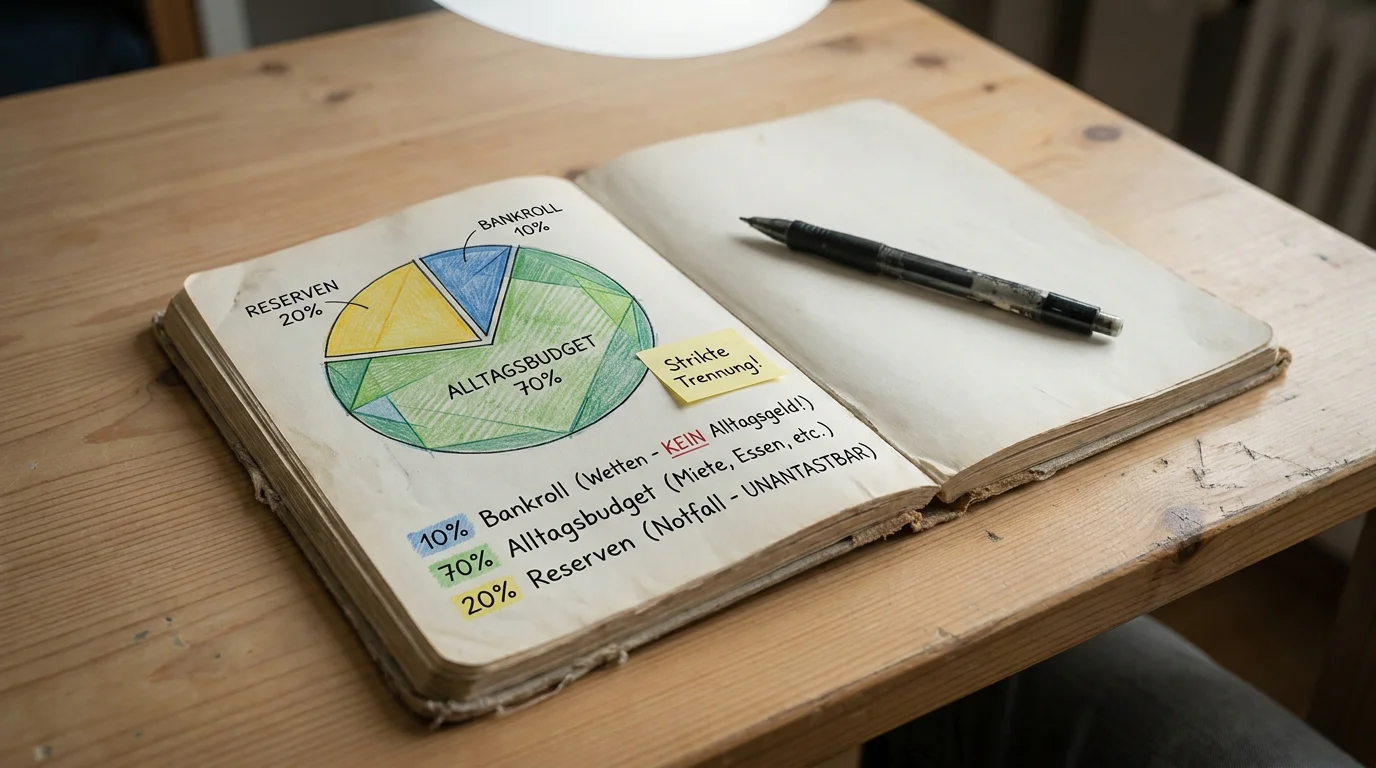 BANKROLL
10%
RESERVEN
20%
ALLTAGSBUDGET
70%
Strikte
Trennung!
10% Bankroll (Wetten - KEIN Alltagsgeld!)
70% Alltagsbudget (Miete, Essen, etc.)
20% Reserven (Notfall - UNANTASTBAR)